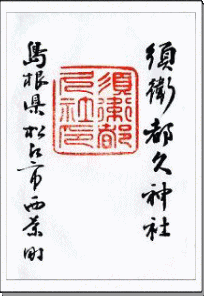 須衛都久神社
須衛都久神社印
島根県松江市西茶町